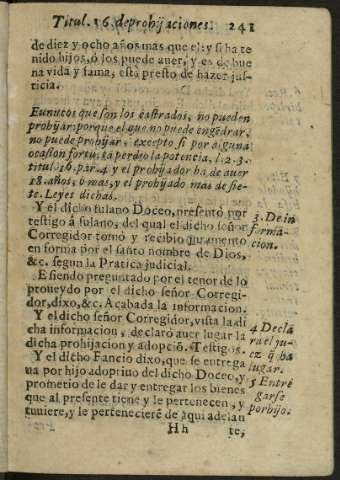 Titul. 16. de prohijaciones. 241
de diez y ocho años mas que el: y si ha te
nido hijos, ó los puede auer, y es de bue
na vida y fama, està presto de hazer jus-
ticia.
Eunucos que son los castrados, no pueden
prohijar: porque el que no puede engẽdrar,
no puede prohijar, excepto si por alguna
ocasion fortuita perdio la potencia, l. 2. 3.
titul. 16. par. 4. y el prohijador ha de auer
18. años, ò mas, y el prohijado mas de sie-
te. Leyes dichas.
Y el dicho fulano Doceo, presentò por
testigo à fulano, del qual el dicho señor
Corregidor tomò y recibio juramento
en forma por el santo nombre de Dios,
&c. segun la Pratica judicial.
3. De in
forma-
cion.
E siendo preguntado por el tenor de lo
proueydo por el dicho señor Corregi-
dor, dixo, &c. Acabada la informacion.
Y el dicho señor Corregidor, vista la di
cha informacion, declarò auer lugar la
dicha prohijacion y adopciõ, Testigos.
4 Declа
ra el ju-
ez q̃ ha
lugar.
Y el dicho Fancio dixo, que se entrega
ua por hijo adoptiuo del dicho Doceo, y
prometio de le dar y entregar los bienes
que al presente tiene y le pertenecen, y
tuuiere, y le pertenecierẽ de aqui adelan
5 Entre
garse
por hijo.
Hh te,